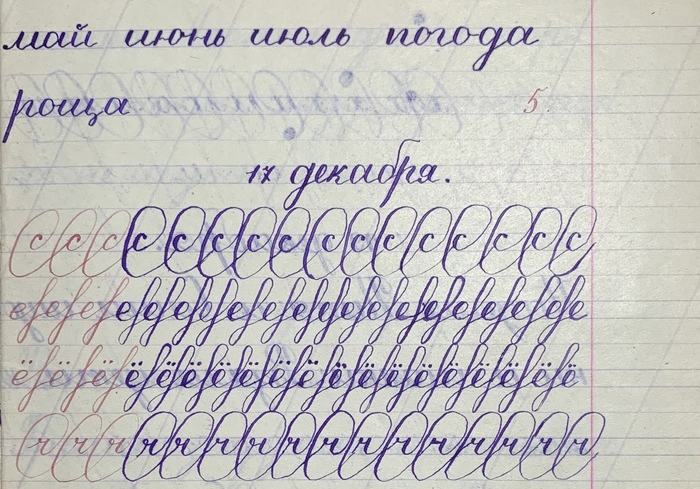 май июнь июль погода
роща 5
17 декабря.
с с с с с с с с с с с с с
е е е е е е е е е е е е е е е е
ё ё ё ё ё ё ё ё ё ё ё ё ё ё ё ё
ч ч ч ч ч ч ч ч ч ч ч ч ч